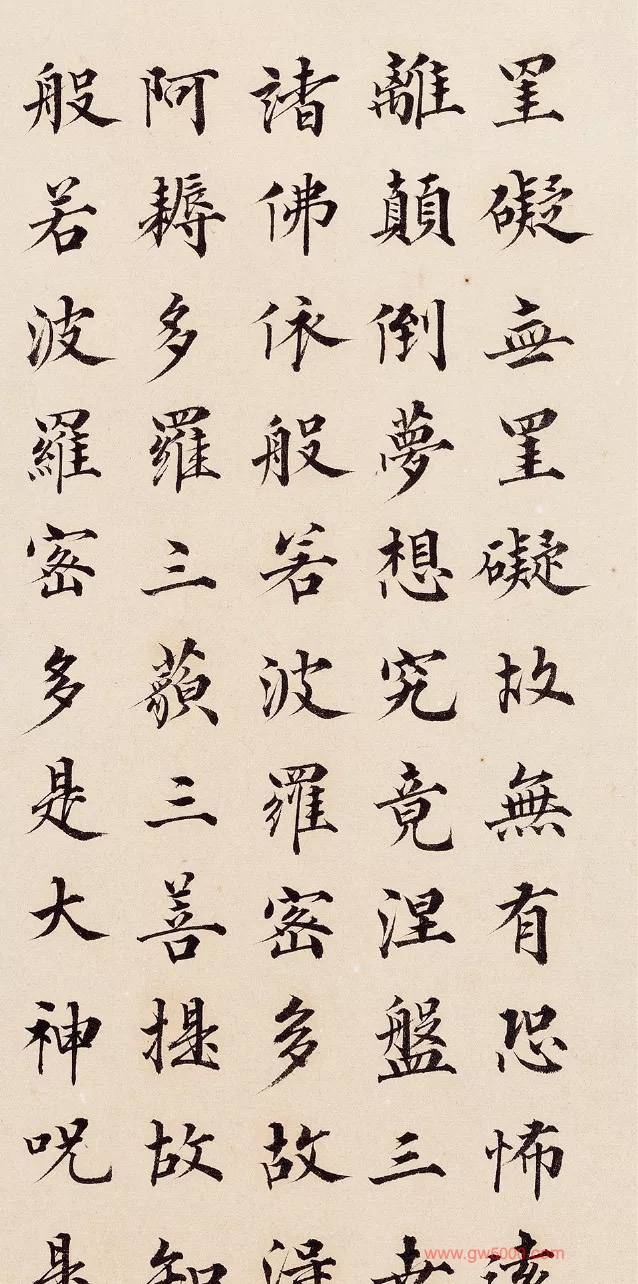 罣礙無罣礙故無有恐怖遠
離顛倒夢想究竟涅盤三世
諸佛依般若波羅密多故得
阿耨多羅三藐三菩提故知
般若波羅密多是大神呪是
www.gw5000.com